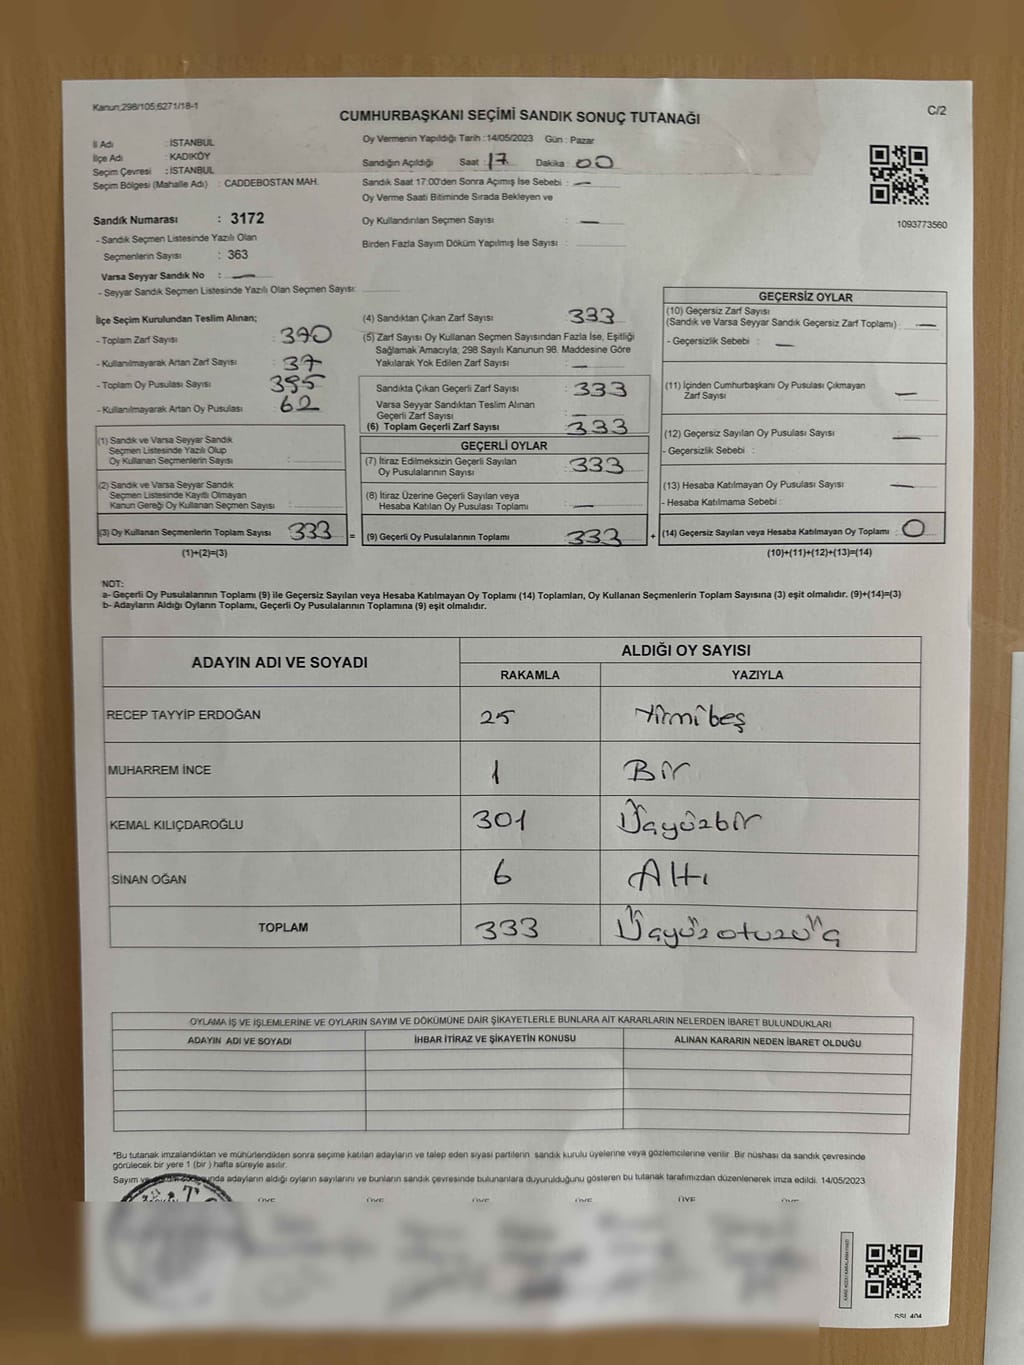 Kanun:298/105;6271/18-1
C/2
CUMHURBAŞKANI SEÇİMİ SANDIK SONUÇ TUTANAĞI
İl Adı : İSTANBUL
İlçe Adı : KADIKÖY
Seçim Çevresi : İSTANBUL
Seçim Bölgesi (Mahalle Adı) : CADDEBOSTAN MAH.
Oy Vermenin Yapıldığı Tarih : 14/05/2023 Gün : Pazar
Sandığın Açıldığı Saat : 17 Dakika : 00
Sandık Saat 17:00'den Sonra Açımış İse Sebebi : —
Oy Verme Saati Bitiminde Sırada Bekleyen ve
Oy Kullandırılan Seçmen Sayısı : —
Birden Fazla Sayım Döküm Yapılmış İse Sayısı :
1093773560
Sandık Numarası : 3172
- Sandık Seçmen Listesinde Yazılı Olan
Seçmenlerin Sayısı : 363
Varsa Seyyar Sandık No : —
- Seyyar Sandık Seçmen Listesinde Yazılı Olan Seçmen Sayısı:
İlçe Seçim Kurulundan Teslim Alınan;
- Toplam Zarf Sayısı : 370
- Kullanılmayarak Artan Zarf Sayısı : 37
- Toplam Oy Pusulası Sayısı : 395
- Kullanılmayarak Artan Oy Pusulası : 62
(1) Sandık ve Varsa Seyyar Sandık
Seçmen Listesinde Yazılı Olup
Oy Kullanan Seçmenlerin Sayısı :
(2) Sandık ve Varsa Seyyar Sandık
Seçmen Listesinde Kayıtlı Olmayan
Kanun Gereği Oy Kullanan Seçmen Sayısı :
(3) Oy Kullanan Seçmenlerin Toplam Sayısı : 333
(1)+(2)=(3)
(4) Sandıktan Çıkan Zarf Sayısı : 333
(5) Zarf Sayısı Oy Kullanan Seçmen Sayısından Fazla İse, Eşitliği
Sağlamak Amacıyla; 298 Sayılı Kanunun 98. Maddesine Göre
Yakılarak Yok Edilen Zarf Sayısı : —
Sandıkta Çıkan Geçerli Zarf Sayısı : 333
Varsa Seyyar Sandıktan Teslim Alınan
Geçerli Zarf Sayısı : —
(6) Toplam Geçerli Zarf Sayısı : 333
GEÇERLİ OYLAR
(7) İtiraz Edilmeksizin Geçerli Sayılan
Oy Pusulalarının Sayısı : 333
(8) İtiraz Üzerine Geçerli Sayılan veya
Hesaba Katılan Oy Pusulası Toplamı : —
= (9) Geçerli Oy Pusulalarının Toplamı : 333
GEÇERSİZ OYLAR
(10) Geçersiz Zarf Sayısı
(Sandık ve Varsa Seyyar Sandık Geçersiz Zarf Toplamı) : —
- Geçersizlik Sebebi : —
(11) İçinden Cumhurbaşkanı Oy Pusulası Çıkmayan
Zarf Sayısı : —
(12) Geçersiz Sayılan Oy Pusulası Sayısı : —
- Geçersizlik Sebebi :
(13) Hesaba Katılmayan Oy Pusulası Sayısı : —
- Hesaba Katılmama Sebebi :
+ (14) Geçersiz Sayılan veya Hesaba Katılmayan Oy Toplamı : 0
(10)+(11)+(12)+(13)=(14)
NOT:
a- Geçerli Oy Pusulalarının Toplamı (9) ile Geçersiz Sayılan veya Hesaba Katılmayan Oy Toplamı (14) Toplamları, Oy Kullanan Seçmenlerin Toplam Sayısına (3) eşit olmalıdır. (9)+(14)=(3)
b- Adayların Aldığı Oyların Toplamı, Geçerli Oy Pusulalarının Toplamına (9) eşit olmalıdır.
ADAYIN ADI VE SOYADI
ALDIĞI OY SAYISI
RAKAMLA YAZIYLA
RECEP TAYYİP ERDOĞAN 25 Yirmibeş
MUHARREM İNCE 1 Bir
KEMAL KILIÇDAROĞLU 301 Üçyüzbir
SİNAN OĞAN 6 Altı
TOPLAM 333 Üçyüzotuzüç
OYLAMA İŞ VE İŞLEMLERİNE VE OYLARIN SAYIM VE DÖKÜMÜNE DAİR ŞİKAYETLERLE BUNLARA AİT KARARLARIN NELERDEN İBARET BULUNDUKLARI
ADAYIN ADI VE SOYADI İHBAR İTİRAZ VE ŞİKAYETİN KONUSU ALINAN KARARIN NEDEN İBARET OLDUĞU
*Bu tutanak imzalandıktan ve mühürlendikten sonra seçime katılan adayların ve talep eden siyasi partilerin sandık kurulu üyelerine veya gözlemcilerine verilir. Bir nüshası da sandık çevresinde
görülecek bir yere 1 (bir) hafta süreyle asılır.
Sayım adayların aldığı oyların sayılarını ve bunların sandık çevresinde bulunanlara duyurulduğunu gösteren bu tutanak tarafımızdan düzenlenerek imza edildi. 14/05/2023
ÜYE ÜYE ÜYE ÜYE ÜYE ÜYE